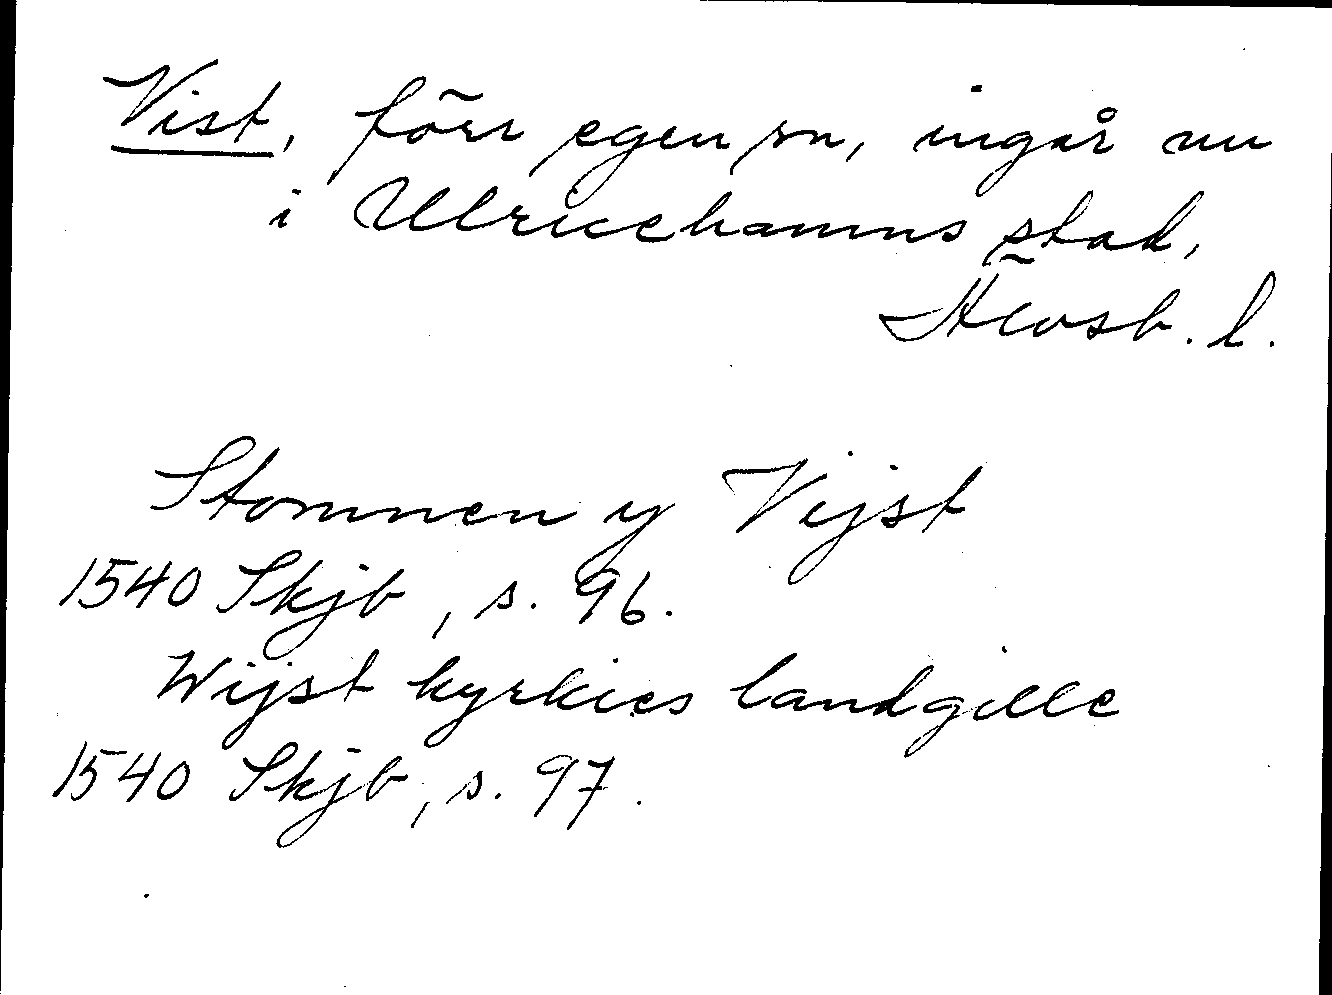 Vist, förr egen sn, ingår nu
i Ulricehamns stad,
Älvsb. l.
Stommen y Vijst
1540 Skjb, s. 96.
Wijst kyrkies landgille
1540 Skjb, s. 97.